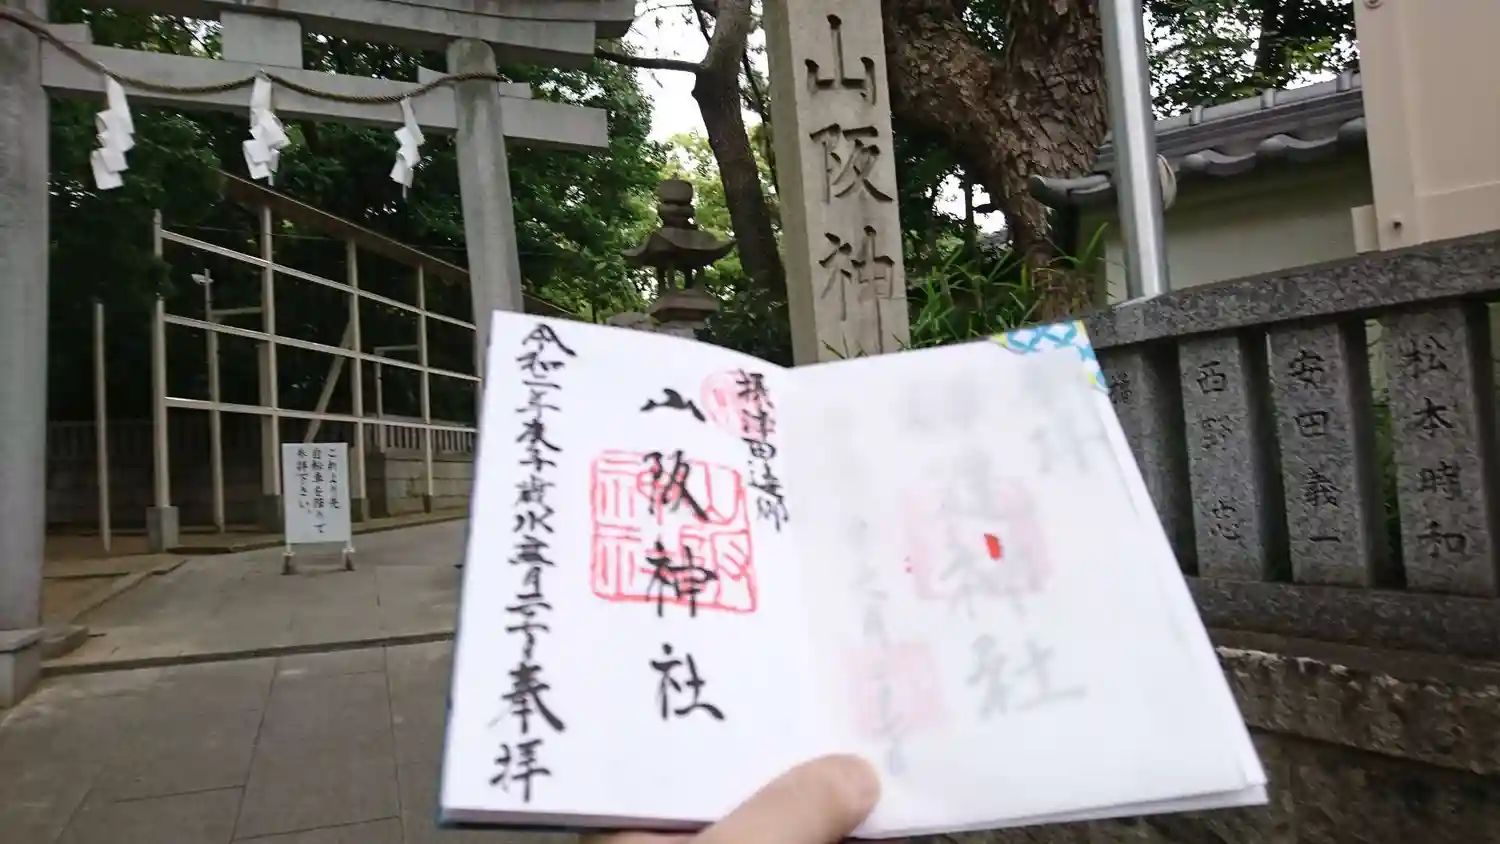 山阪神
摂津田辺郷
山阪神社
山阪神社
令和二年庚子
奉拝
これより先
自転車を降りて
お参り下さい。
松本時和
安田義一
西野 忠
神社